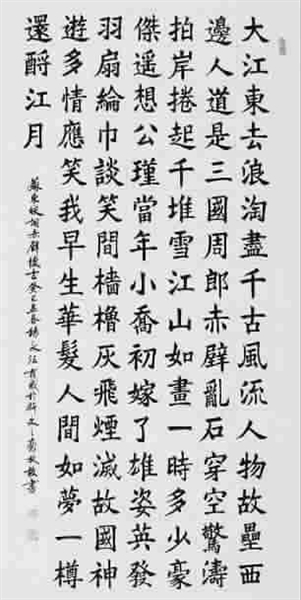 大江東去浪淘盡千古風流人物故壘西
邊人道是三國周郎赤壁亂石穿空驚濤
拍岸捲起千堆雪江山如畫一時多少豪
傑遥想公瑾當年小喬初嫁了雄姿英發
羽扇綸巾談笑間檣櫓灰飛煙滅故國神
遊多情應笑我早生華髮人間如夢一樽
還酹江月
蘇東坡詞赤壁懷古癸巳書